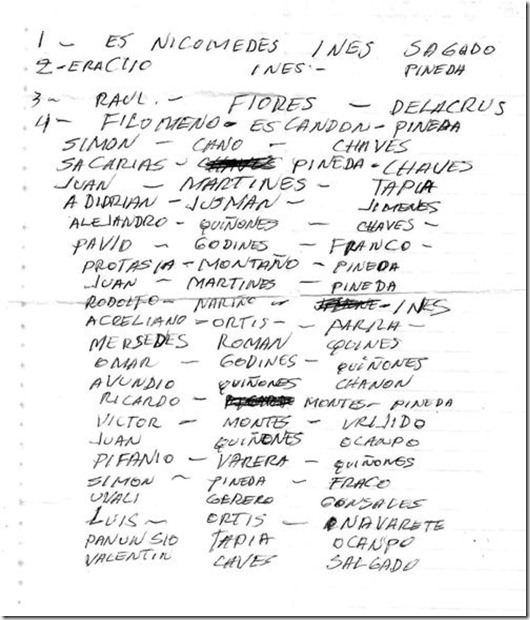 1 - ES NICOMEDES INES SAGADO
2-ERACIIO INES - PINEDA
3 - RAUL. - FIORES - DELACRUS
4 - FILOMENO - ESCANDON - PINEDA
SIMON - CANO - CHAVES
SACARIAS - PINEDA - CHAVES
JUAN - MARTINES - TAPIA
ADIDRIAN - JUSMAN - JIMENES
ALEJANDRO - QUIÑONES - CHAVES -
PAVID - GODINES - FRANCO -
PROTASIA - MONTAÑO - PINEDA
JUAN - MARTINES - PINEDA
RODOLFO - NARIÑO - INES
ACRELIANO - ORTIS - PARRA -
MERSEDES ROMAN QUINES
OMAR - GODINES - QUIÑONES
AVUNDIO QUIÑONES CHANON
RICARDO - MONTES - PINEDA
VICTOR - MONTES - VRIJIDO
JUAN QUIÑONES OCANPO
PIFANIO - VARERA - QUIÑONES
SIMON - PINEDA - FRACO
UVALI GERERO GONSALES
LUIS - ORTIS - NAVARETE
PANUNSIO TAPIA OCANPO
VALENTIN CAVES SALGADO